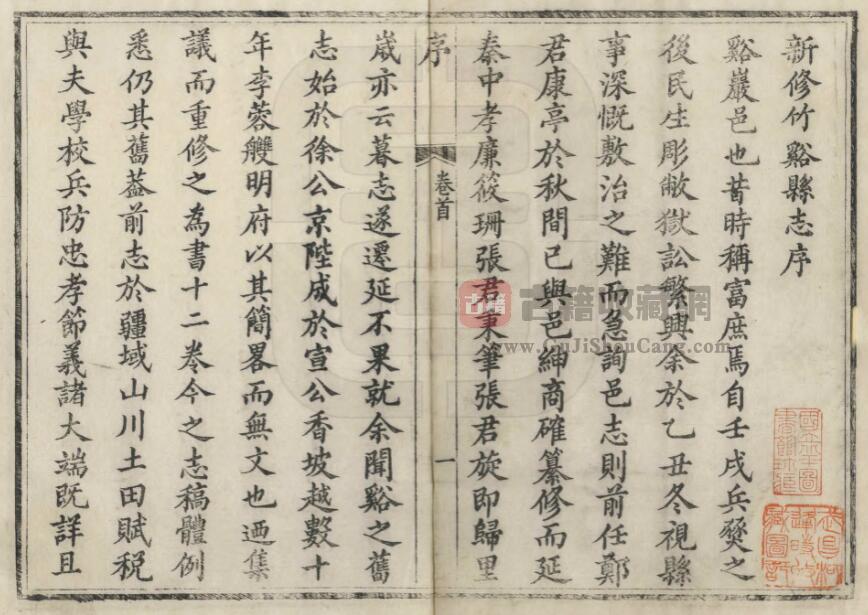 新修竹谿縣志序
谿巖邑也昔時稱富庶焉自壬戌兵燹之
後民生彫敝獄訟繁興余於乙丑冬視縣
事深慨敷治之難而急詢邑志則前任鄭
君康亭於秋間已與邑紳商確纂修而延
秦中孝廉筱珊張君秉筆張君旋即歸里
序
卷首
一
歲亦云暮志遂遷延不果就余聞谿之舊
志始於徐公京陛成於宣公香坡越數十
年李蓉艭明府以其簡畧而無文也迺集
議而重修之為書十二卷今之志稿體例
悉仍其舊葢前志於疆域山川土田賦税
與夫學校兵防忠孝節義諸大端既詳且
古籍
古籍收藏網
www.GuJiShouCang.com